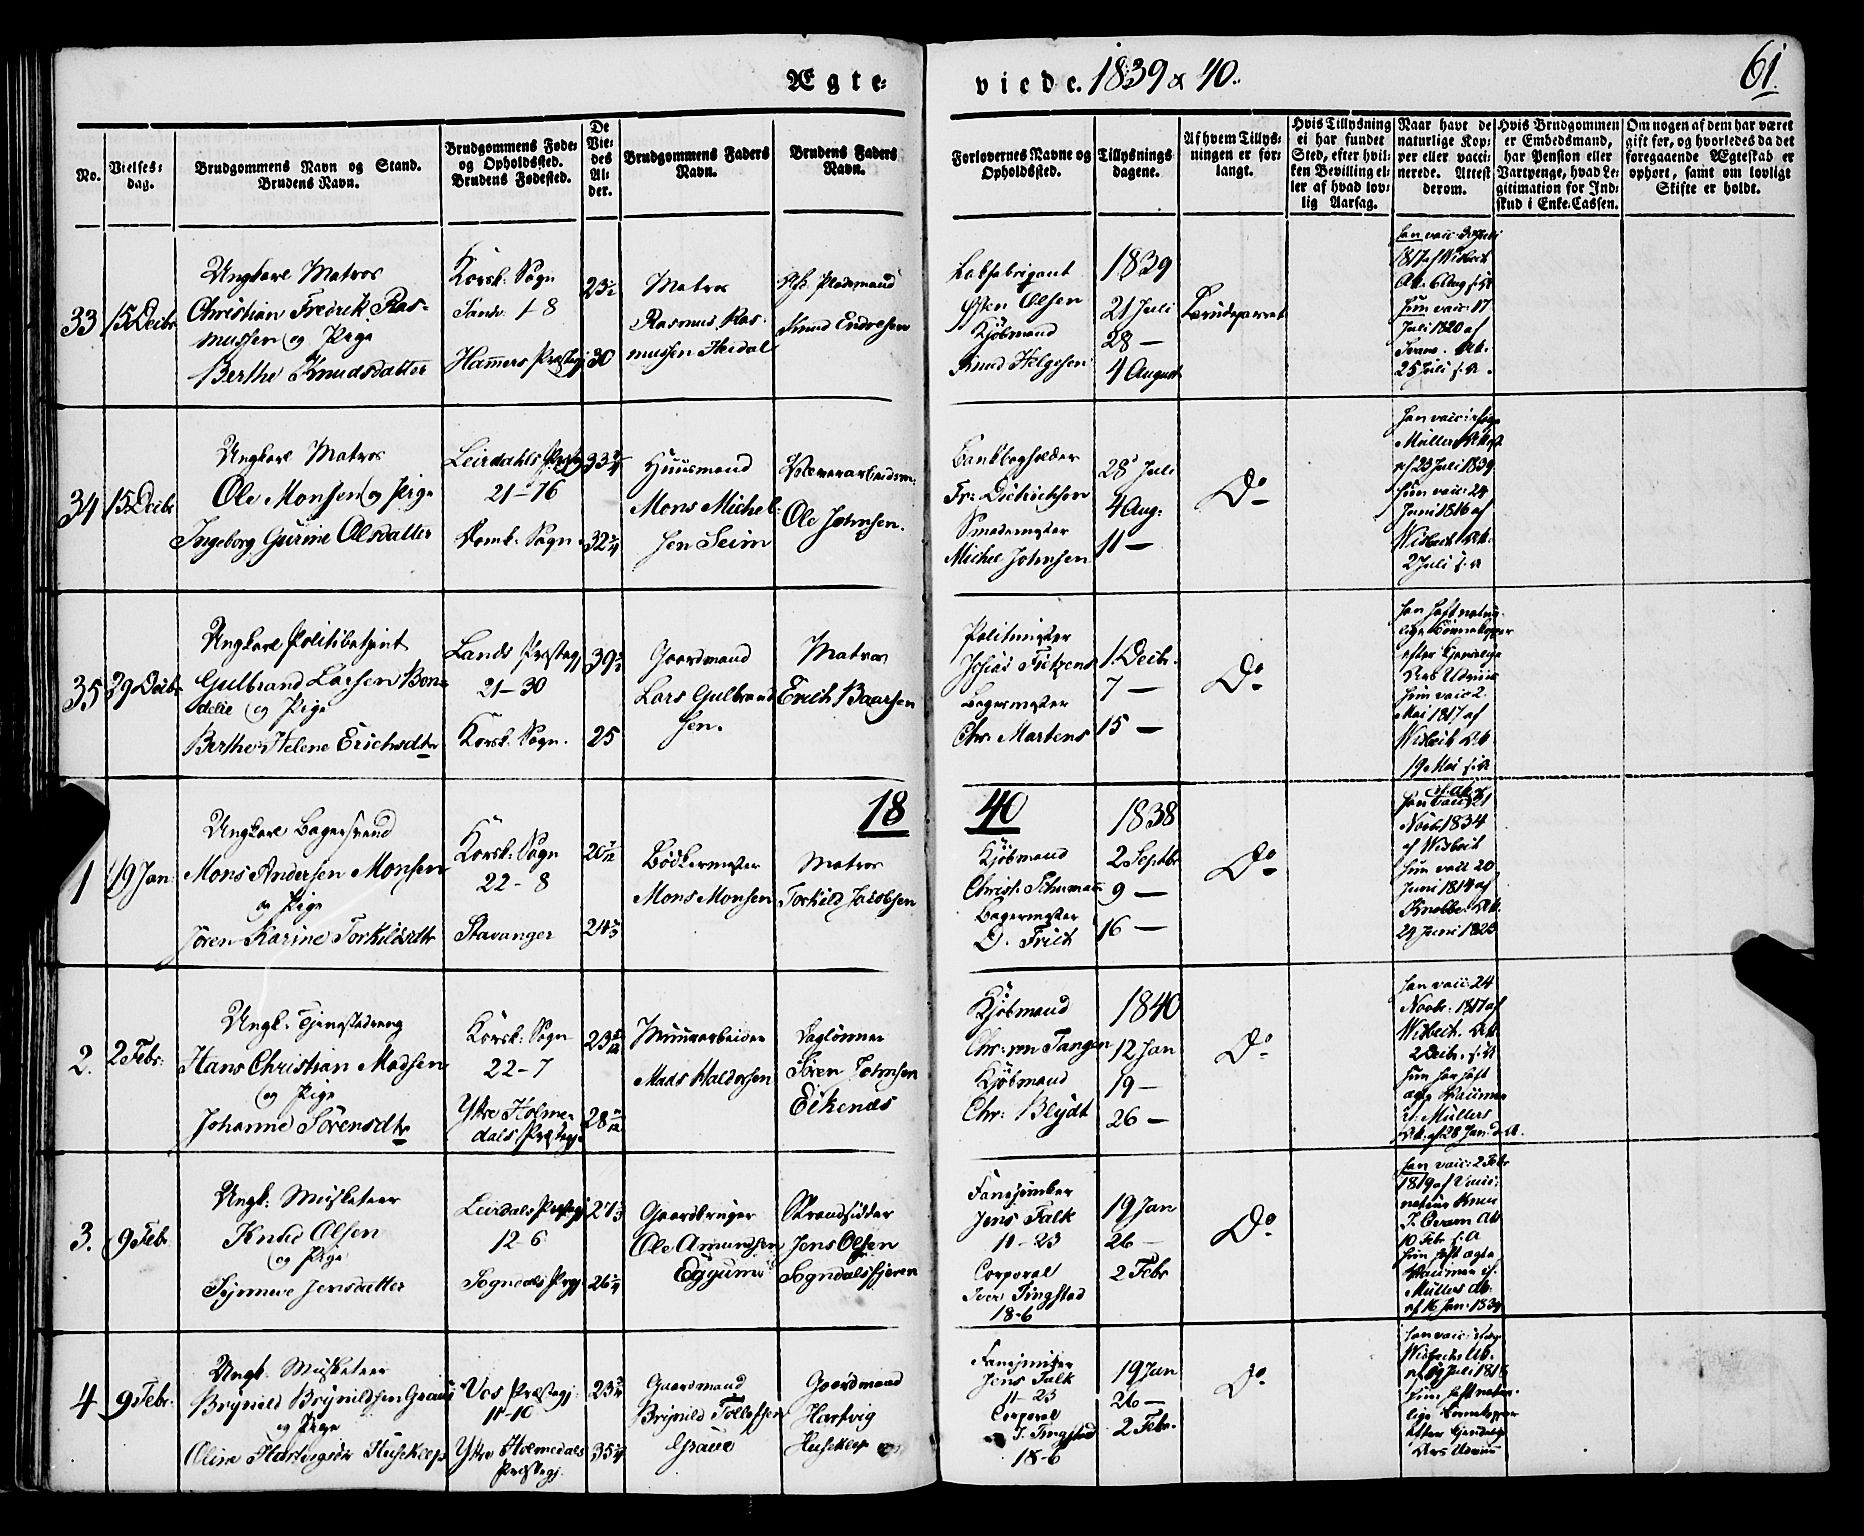 Ægte-
viede. 1839 & 40.
61.
No.
Vielses-
dag.
Brudgommens Navn og Stand.
Brudens Navn.
Brudgommens Føde-
og Opholdssted.
Brudens Fødested.
De
Vie-
des
Al-
der.
Brudgommens Faders
Navn.
Brudens Faders
Navn.
Forlovernes Navne og
Opholdssted.
Tillysnings
dagene.
Af hvem Tillys-
ningen er for-
langt.
Hvis Tillysning
ei har fundet
Sted, efter hvil-
ken Bevilling el-
ler af hvad lov-
lig Aarsag.
Naar havt de
naturlige Kop-
per eller vacci-
nerede. Attest
derom.
Hvis Brudgommen
er Embedsmand,
har Pension eller
Vartpenge, hvad Le-
gitimation for Ind-
skud i Enke-Cassen.
Om nogen af dem har været
gift før, og hvorledes da det
foregaaende Ægteskab er
ophørt, samt om lovligt
Skifte er holdt.
33
15 Decbr
Ungkarl Matros
Christian Fredrik Ras-
mussen og Pige
Berthe Knudsdatter
Korsk: Sogn
Sandv. 1-8
Hammers Præstegj
23½
30
Matros
Rasmus Ras-
mussen Heidal
Pladsmand
Knud Endresen
Østen Olsen
Kjöbmand
Knud Helgesen
1839
21 Juli
28 —
4 August
Brudeparret
Han vacc:
Hun vacc: 17
Juli 1820 af
25 Juli s: A
34
15 Decbr
Ungkarl Matros
Ole Monsen og Pige
Ingeborg Gurine Olsdatter
Leirdahls Præstg
21-76
Domk: Sogn
33¾
32¾
Huusmand
Mons Michel-
sen Seim
Ole Johnsen.
Fr: Didrichsen
Smedemester
Michel Johnsen
28 Juli
4 Aug:
11 —
Do
Müllers Att
af 23 Juli 1839
Hun vacc: 24
Juni 1816 af
Wisbech Att.
2 Juli s: A
35
29 Decbr
Ungkarl Politibetjent
Gulbrand Larsen Bon-
delie og Pige
Berthe Helene Erichsdtr
Lands Præstegj
21-30
Korsk: Sogn.
39½
25
Gaardmand
Lars Gulbrand
sen.
Matros
Erich Baarsen
Politimester
Josias Fritzens
Bagermester
Chr. Martens
1 Decbr.
7 —
15 —
Do
Han haft natur-
lige Børnekopper
efter Gjenlige
Hun vacc 2
Mai 1817 af
Wisbech Att.
19 Mai s: A
18
40
1
19 Jan
Ungkarl Bagersvend
Mons Andersen Monsen
og Pige
Søren Karine Torkildsdtr
Korsk: Sogn
22-8
Stavanger
Bödkermester
Mons Monsen
Matros
Torkild Jacobsen
Kjöbmand
Christ: Schuman
Bagermester
D. Frich
1838
2 Septbr
9 —
16 —
Do
Han vacc 21
Novbr 1834
af Wisbech
Hun vacc 20
Juni 1814 af
29 Juni 1823
2.
2 Febr:
Ungk. Tjenestedreng
Hans Christian Madsen
og Pige
Johanne Sörensdtr
Korsk: Sogn
22-7
Ytre Holme-
dals Præstegj.
Muurarbeider
Mads Haldorsen
Daglönner
Sören Johnsen
Eikenæs
Kjöbmand
Chr: von Tangen
Kjöbmand
Chr: Blydt
1840
12 Jan
19 —
26 —
Do
Han vacc: 24
Novbr. 1817 af
Wisbech. Att
2 Decbr. s: A
Hun har haft
ægte Vacciner
e: Müllers
Att. af 28 Jan: d. A.
3.
9 Febr
Ungk: Musketeer
Knud Olsen
og Pige
Synneve Jensdatter
Leirdals Præstegj
12-6
Sogndals Præstgj
26¼
Gaardbruger
Ole Amundsen
Eggum
Strandsidder
Jens Olsen
Sogndalsfjæren
Fanejunker
Jens Falk
11-23
Corporal
Iver Tingstad
18-6
19 Jan
26 —
2 Febr
Do
Han vacc: 2 Febr
1819 af Vacci-
10 Febr s: A
Hun haft ægte
Vacciner e:
Müllers Att.
af 16 Jan: 1839
4
9 Febr.
Ungk. Musketeer
Brynild Brynildsen Graue
og Pige
Oline Hartvigsdtr Huseklep
Vos Præstegj:
11-10
Ytre Holmedals
Præstegj.
23¾
35¼
Gaardmand
Brynild Tollefsen
Graue
Gaardmand
Hartvig
Huseklep
Fanejunker
Jens Falk
11-23
Corporal
T. Tingstad
18-6
19 Jan
26 —
2 Febr.
Do
Han vacc:
Wisbechs Att.
Juli 1815
Hun haft natur-
lige Børnekopper